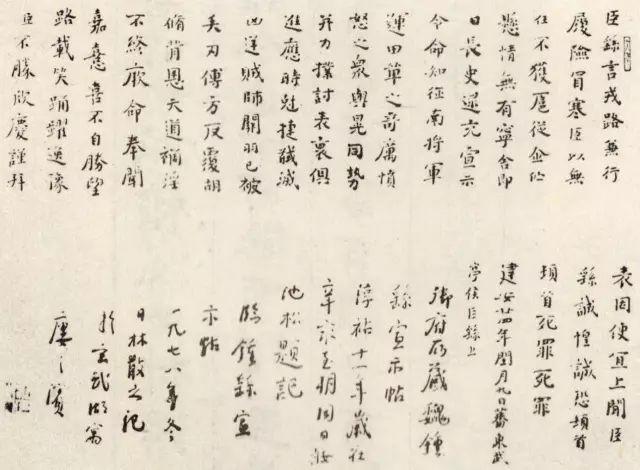 臣繇言戎路兼行
履險冒寒臣以無
任不獲扈從企佇
懸情無有寧舍即
日長史逮充宣示
令命知征南將軍
運田單之奇厲憤
怒之衆與晃同勢
并力撲討表裏俱
進應時尅捷馘滅
凶逆賊帥關羽已被
矢刃傅方反覆胡
脩背恩天道禍淫
不終厥命奉聞
嘉憙喜不自勝望
路載笑踊躍逸豫
臣不勝欣慶謹拜
表因便宜上聞臣
繇誠惶誠恐頓首
頓首死罪死罪
建安廿四年閏月九日蕃東武
亭侯臣繇上
御府所藏魏鍾
繇宣示帖
淳祐十一年歲在
辛亥至朔同日
池松題記
臨鍾繇宣
示帖
一九七八年冬
日林散之記
於玄武湖寓
廔之